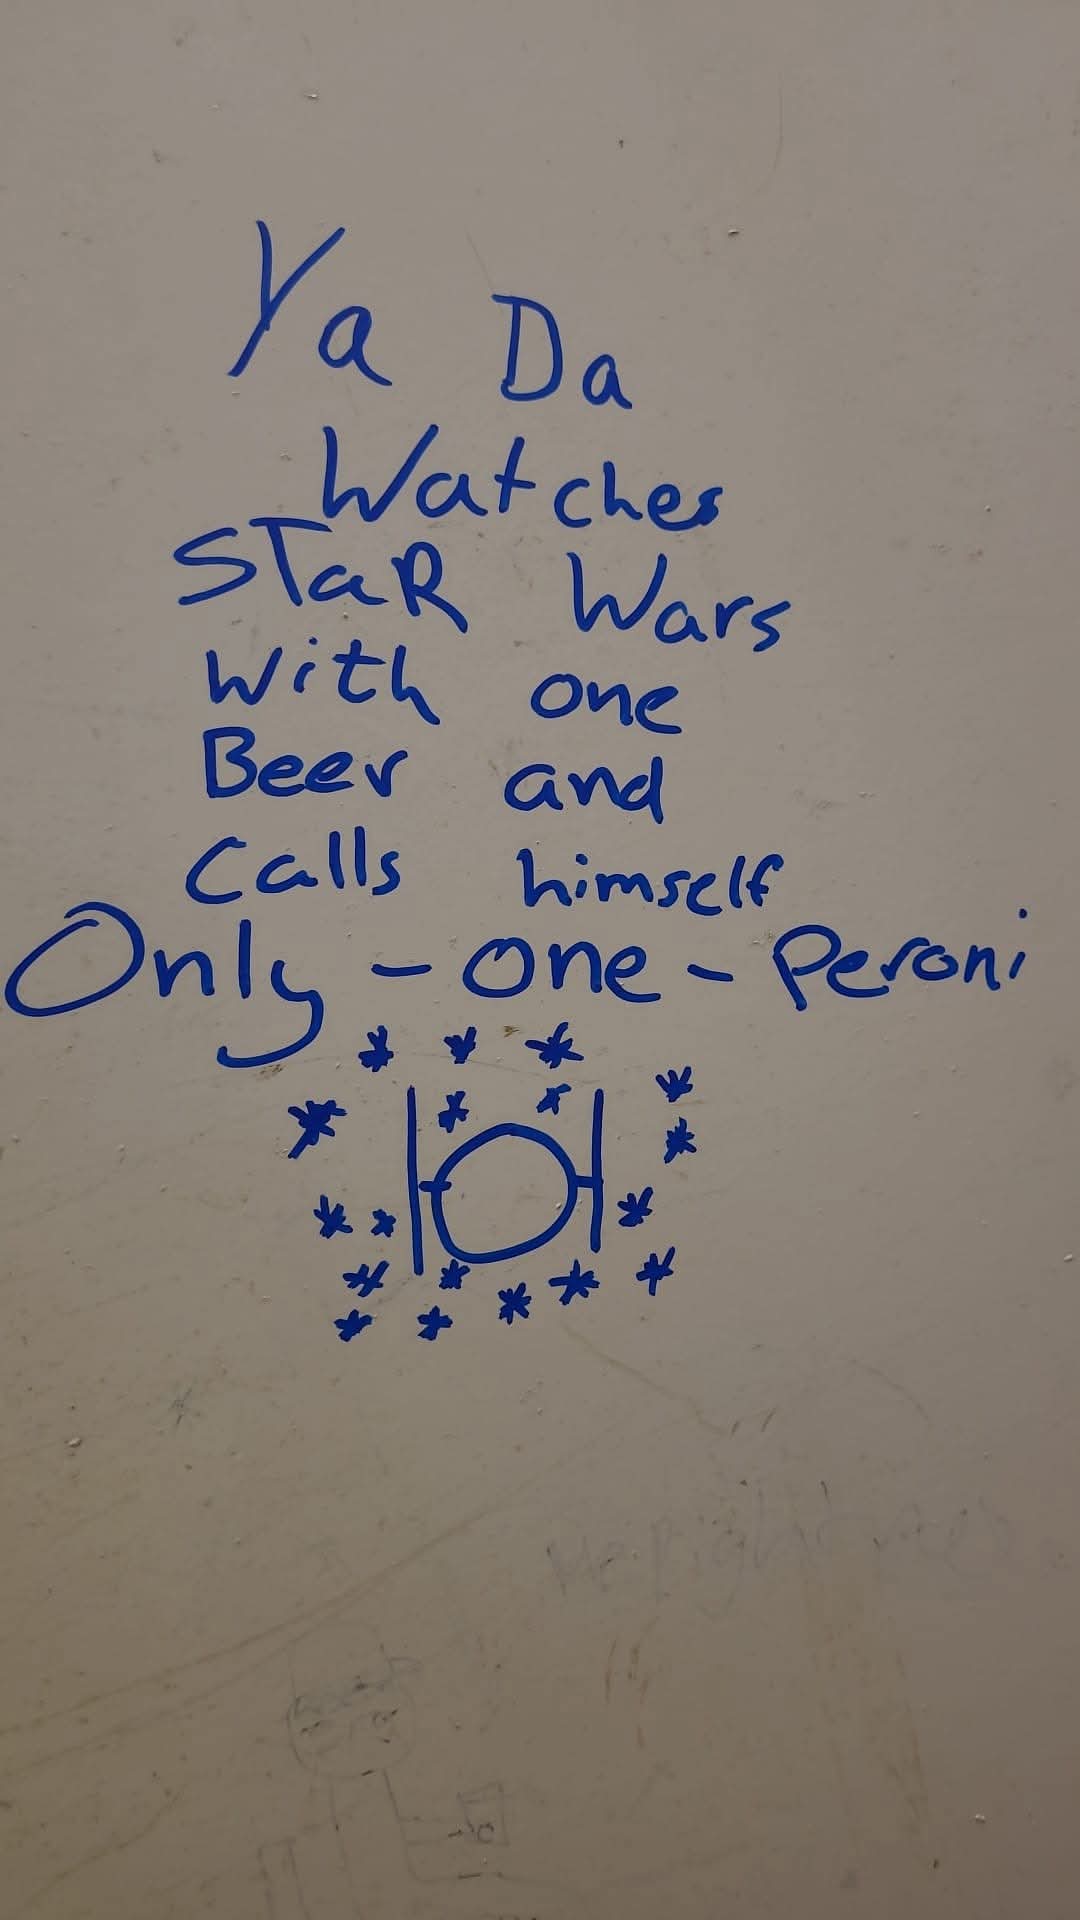 Ya Da
Watches
STaR Wars
With one
Beer and
Calls himself
Only - one - Peroni